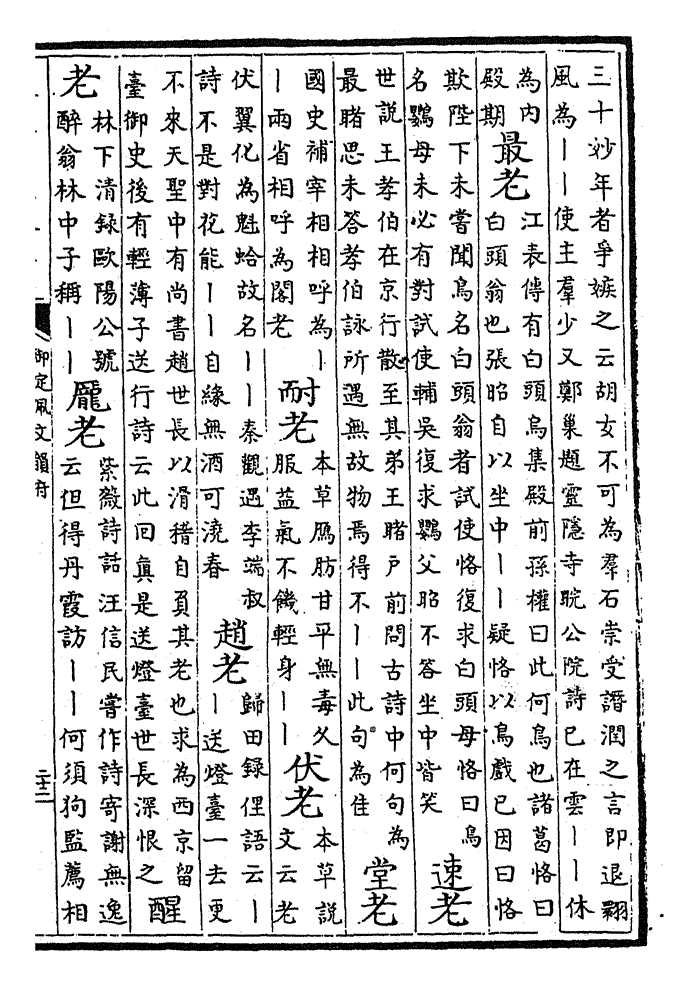 三十妙年者爭嫉之云胡女不可為羣石崇受譖潤之言即退翾
風為丨丨使主羣少又鄭巢題靈隱寺睆公院詩已在雲丨丨休
為內
殿期
最老
江表傳有白頭鳥集殿前孫權曰此何鳥也諸葛恪曰
白頭翁也張昭自以坐中丨丨疑恪以鳥戲已因曰恪
欺陛下未嘗聞鳥名白頭翁者試使恪復求白頭母恪曰鳥
名鸚母未必有對試使輔吳復求鸚父昭不答坐中皆笑
速老
世説王孝伯在京行散至其弟王睹戶前問古詩中何句為
最睹思未答孝伯詠所遇無故物焉得不丨丨此句為佳
堂老
國史補宰相相呼為丨
丨兩省相呼為閣老
耐老
本草鴈肪甘平無毒久
服益氣不饑輕身丨丨
伏老
本草説
文云老
伏翼化為魁蛤故名丨丨秦觀遇李端叔
詩不是對花能丨丨自緣無酒可澆春
趙老
歸田錄俚語云丨
丨送燈臺一去更
不來天聖中有尚書趙世長以滑稽自負其老也求為西京留
臺御史後有輕薄子送行詩云此回眞是送燈臺世長深恨之
醒
老
林下清録歐陽公號
醉翁林中子稱丨丨
龎老
紫薇詩話汪信民嘗作詩寄謝無逸
云但得丹霞訪丨丨何須狗監薦相
御定佩文韻府
二十二